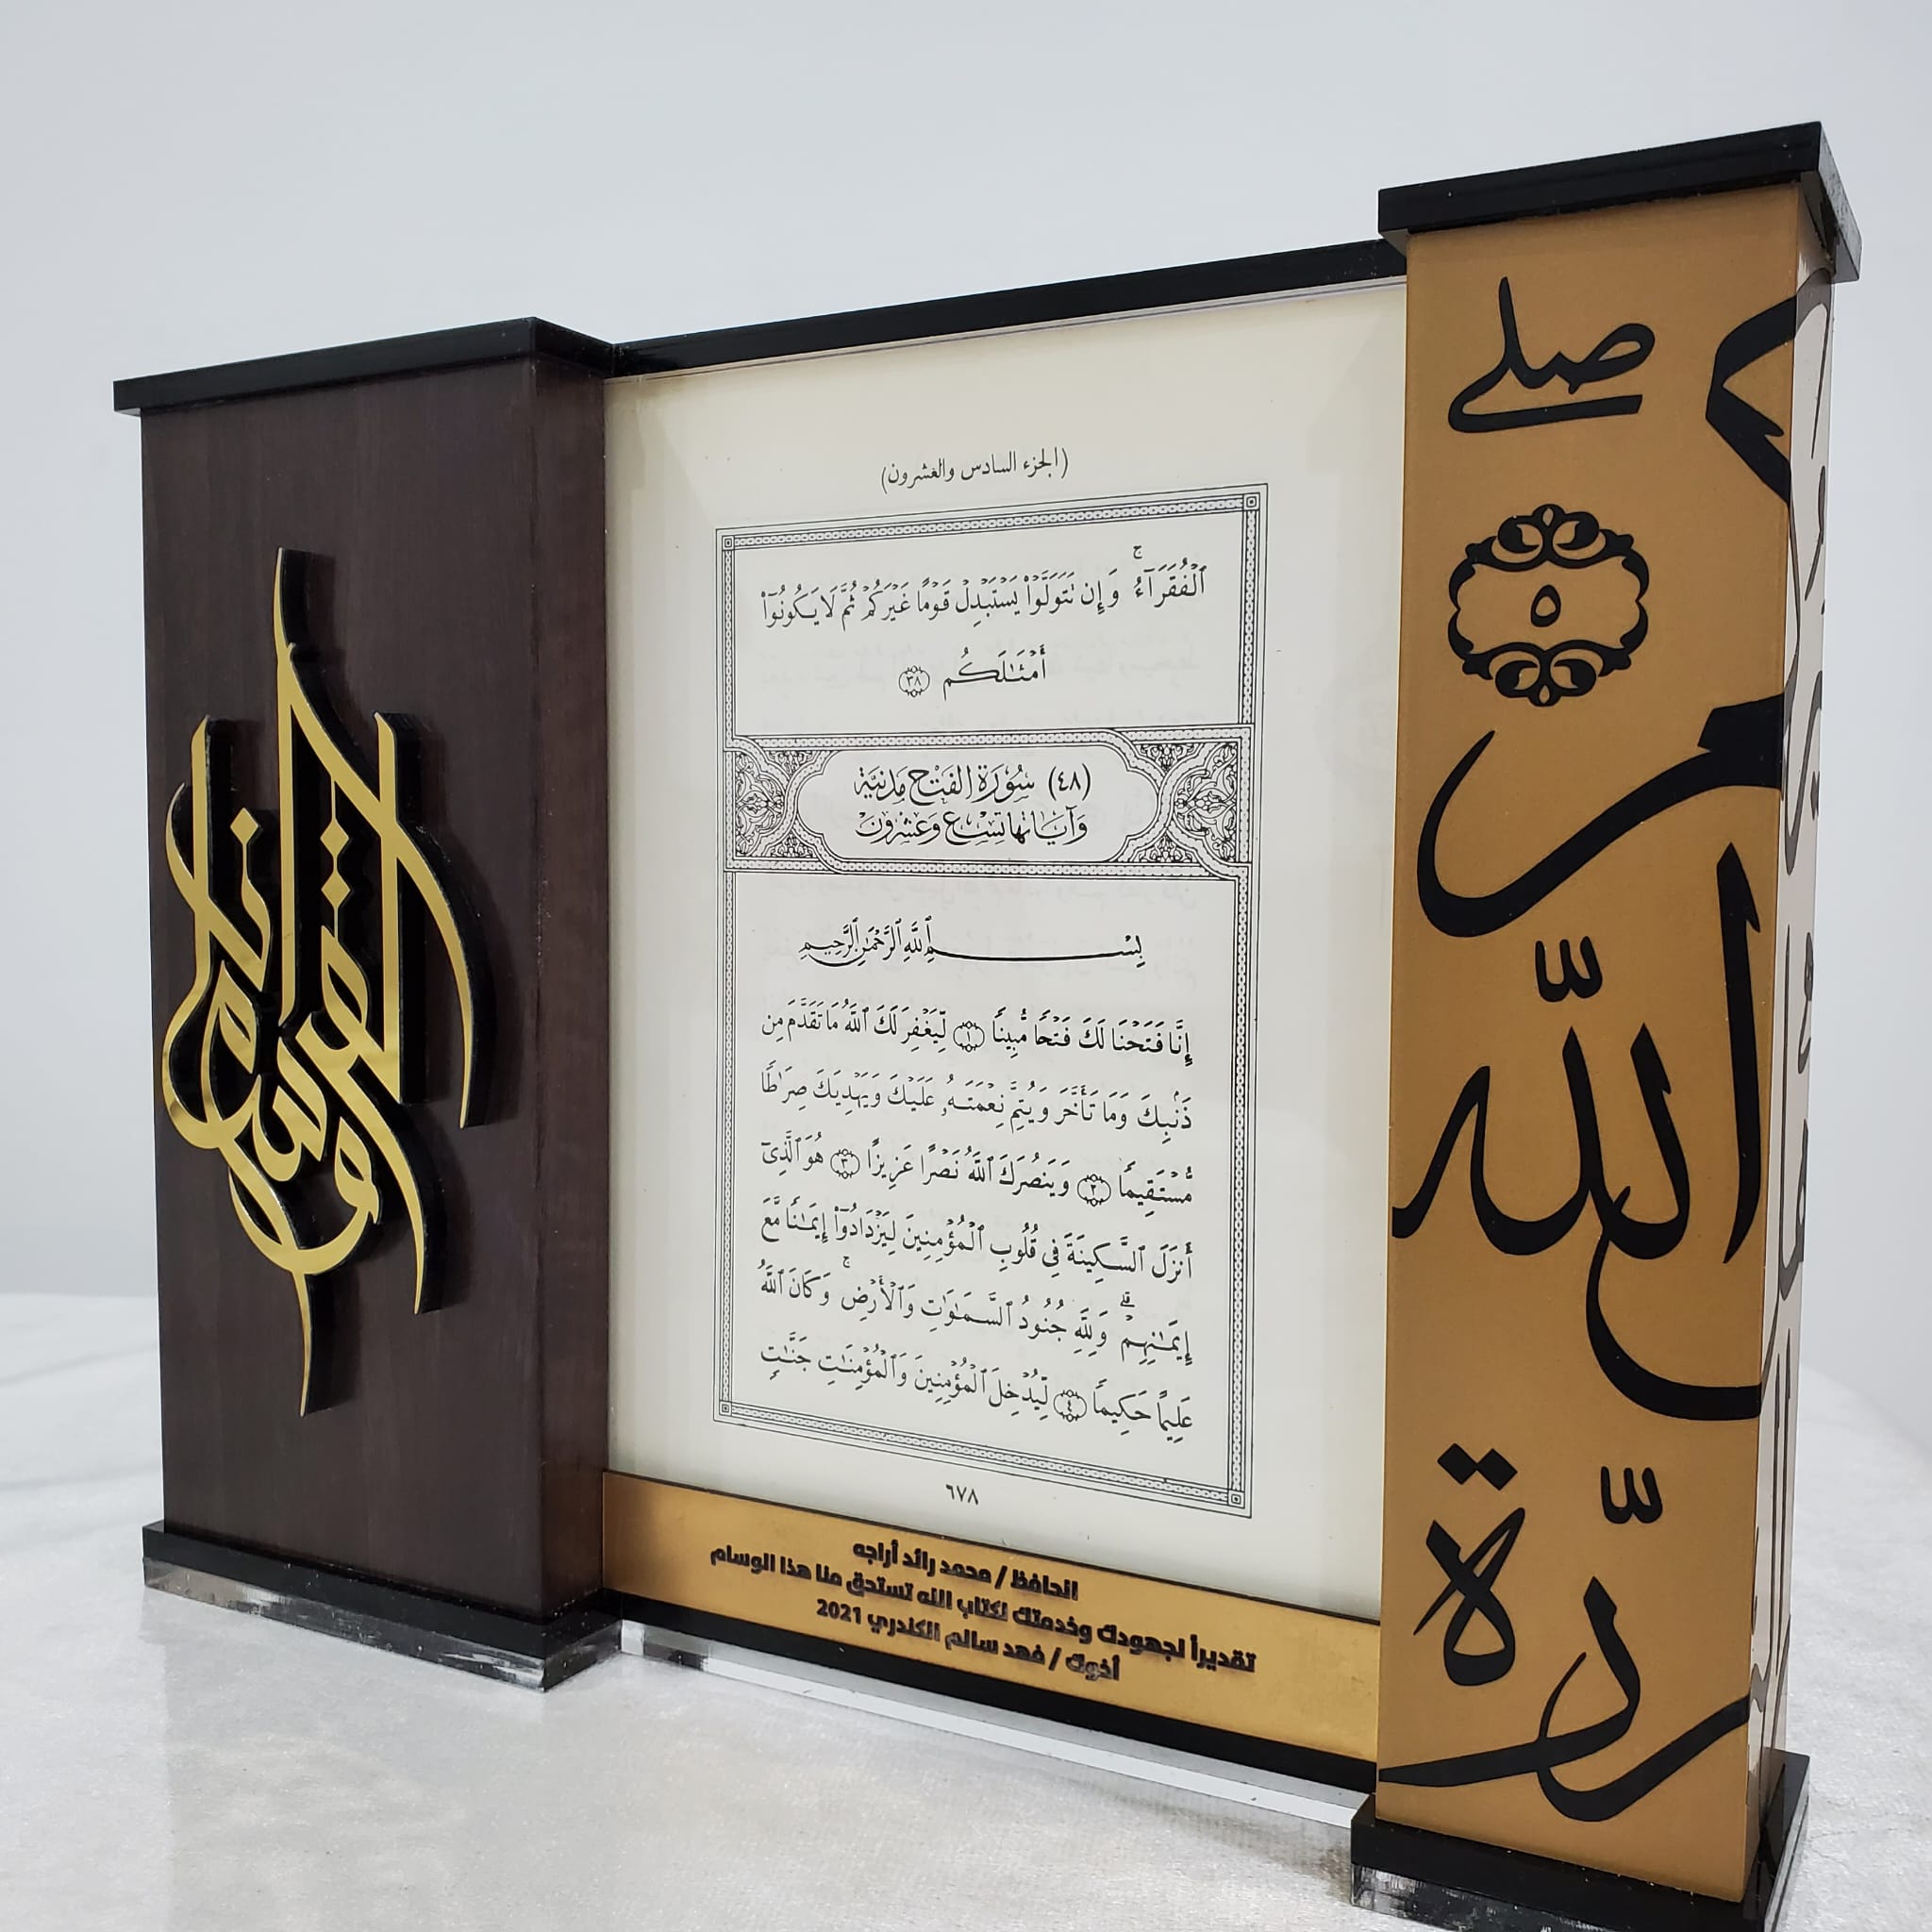 (الجزء السادس والعشرون)
ٱلْفُقَرَآءُ ۚ وَإِن تَتَوَلَّوْا۟ يَسْتَبْدِلْ قَوْمًا غَيْرَكُمْ ثُمَّ لَا يَكُونُوٓا۟
أَمْثَـٰلَكُم ٣٨
(٤٨) سُورَةُ الفَتْحِ مَدَنِيَّة
وَآيَاتُهَا تِسْعٌ وَعِشْرُونَ
بِسْمِ ٱللَّهِ ٱلرَّحْمَـٰنِ ٱلرَّحِيمِ
إِنَّا فَتَحْنَا لَكَ فَتْحًا مُّبِينًا ١ لِّيَغْفِرَ لَكَ ٱللَّهُ مَا تَقَدَّمَ مِن
ذَنۢبِكَ وَمَا تَأَخَّرَ وَيُتِمَّ نِعْمَتَهُۥ عَلَيْكَ وَيَهْدِيَكَ صِرَٰطًا
مُّسْتَقِيمًا ٢ وَيَنصُرَكَ ٱللَّهُ نَصْرًا عَزِيزًا ٣ هُوَ ٱلَّذِىٓ
أَنزَلَ ٱلسَّكِينَةَ فِى قُلُوبِ ٱلْمُؤْمِنِينَ لِيَزْدَادُوٓا۟ إِيمَـٰنًا مَّعَ
إِيمَـٰنِهِمْ ۗ وَلِلَّهِ جُنُودُ ٱلسَّمَـٰوَٰتِ وَٱلْأَرْضِ ۚ وَكَانَ ٱللَّهُ
عَلِيمًا حَكِيمًا ٤ لِّيُدْخِلَ ٱلْمُؤْمِنِينَ وَٱلْمُؤْمِنَـٰتِ جَنَّـٰتٍ
٦٧٨
الحافظ / محمد رائد أراجه
تقديراً لجهودك وخدمتك لكتاب الله تستحق منا هذا الوسام
أخوك / فهد سالم الكندري 2021
صلى
٥
الله